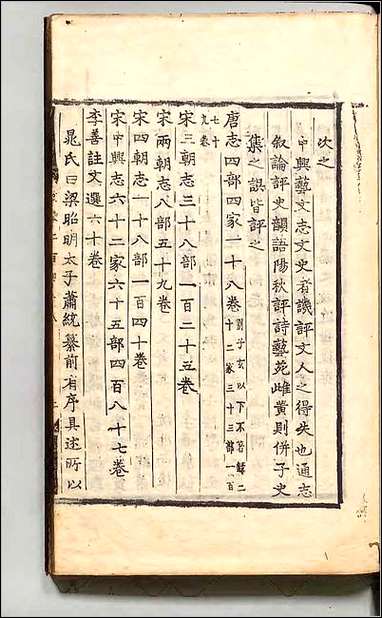 次之
中興藝文志文史者譏評文人之得失也通志
叙論評史韻語陽秋評詩藝苑雌黃則併子史
集之誤皆評之
唐志四部四家一十八卷劉子玄以下不著錄二十二家三十三部一百七十九卷
宋三朝志三十八部一百二十五卷
宋兩朝志八部五十九卷
宋四朝志一十八部一百四十卷
宋中興志六十二家六十五部四百八十七卷
李善註文選六十卷
晁氏曰梁昭明太子蕭統纂前有序具述所以